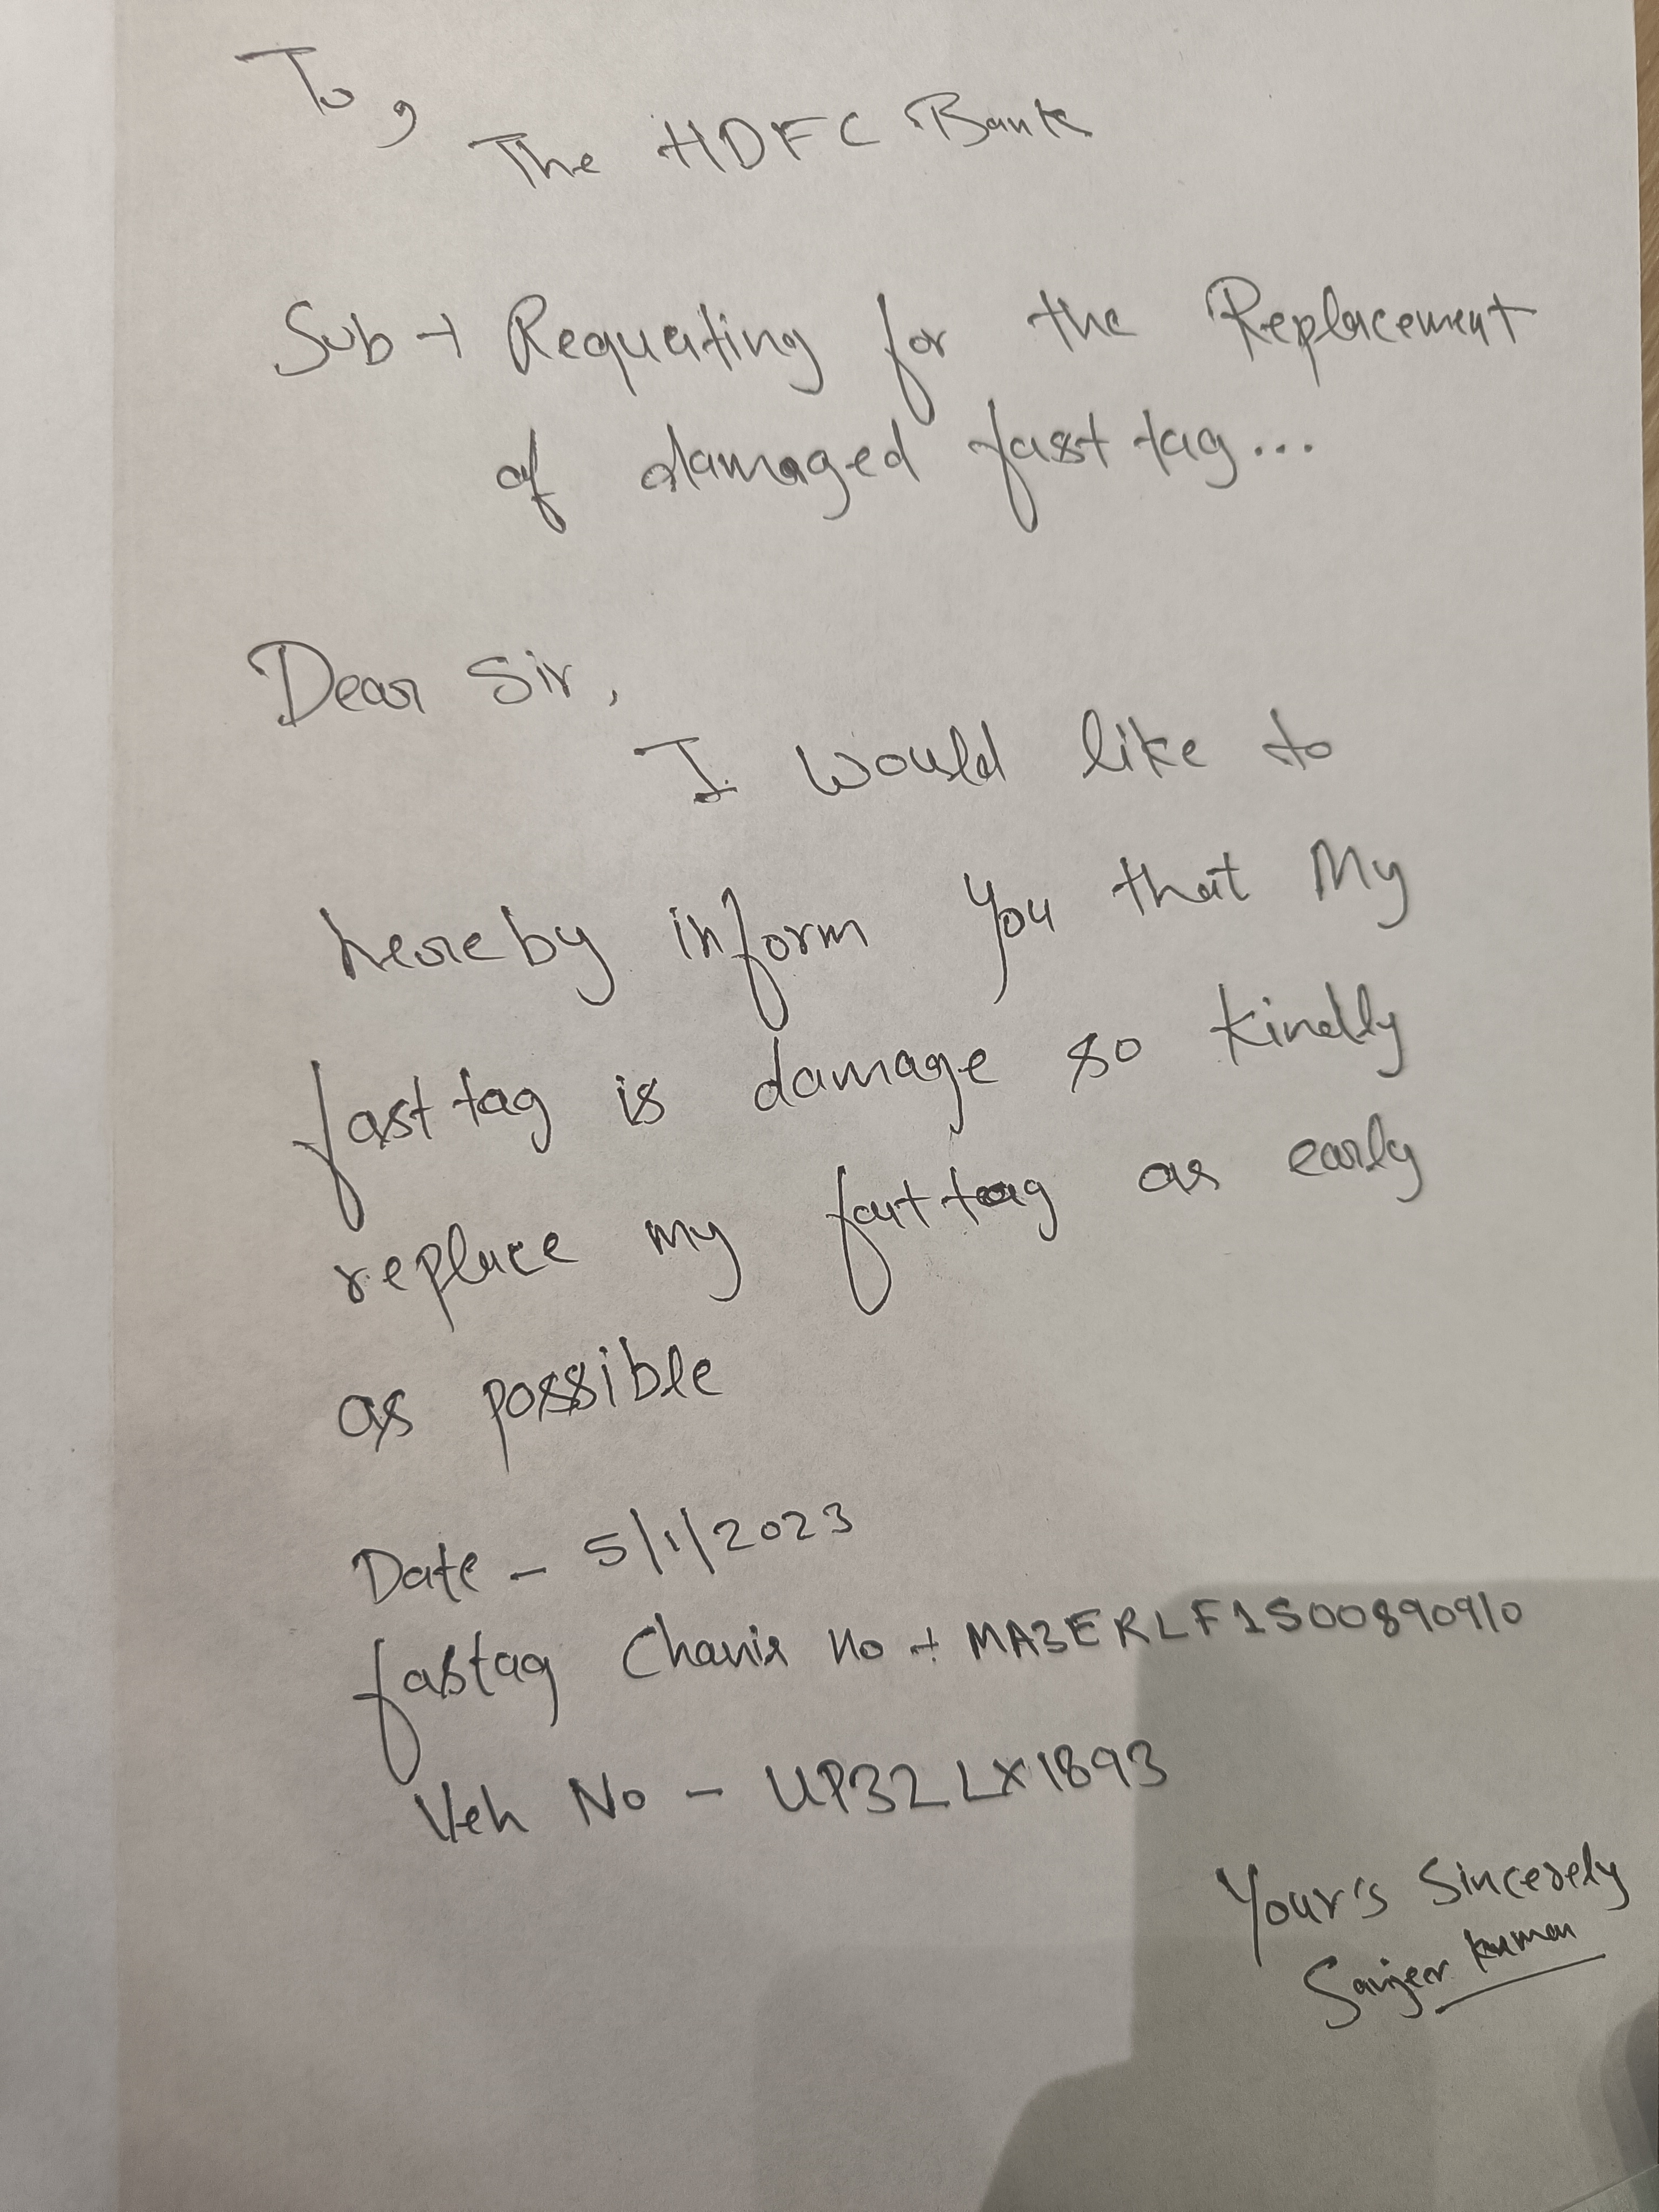 To,
The HDFC Bank
Sub → Requesting for the Replacement
of damaged fast tag...
Dear Sir,
I would like to
hereby inform you that My
fast tag is damage so kindly
replace my fast tag as early
as possible
Date - 5/1/2023
fastag Chassis No → MA3ERLF1S00890910
Veh No - UP32LX1893
Your's Sincerely
Sanjeev Kumar